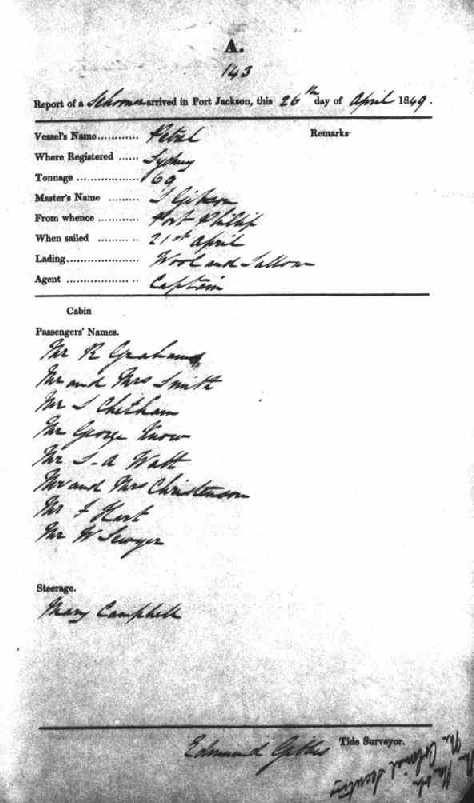 A.
143
Report of a Schooner arrived in Port Jackson, this 26th day of April 1849.
Vessel's Name............ Petrel Remarks
Where Registered ...... Sydney
Tonnage .................. 69
Master's Name ......... J Gibson
From whence ......... Port Phillip
When sailed ............ 21st April
Lading..................... Wool and Tallow
Agent ..................... Captain
Cabin
Passengers' Names.
Mr R Graham
Mr and Mrs Smith
Mr J Chetham
Mr George Know
Mr J. A Watt
Mr and Mrs Christenson
Mr F Hart
Mr W Sawyer
Steerage.
Mary Campbell
Edmund Gibbes Tide Surveyor.
Colonial